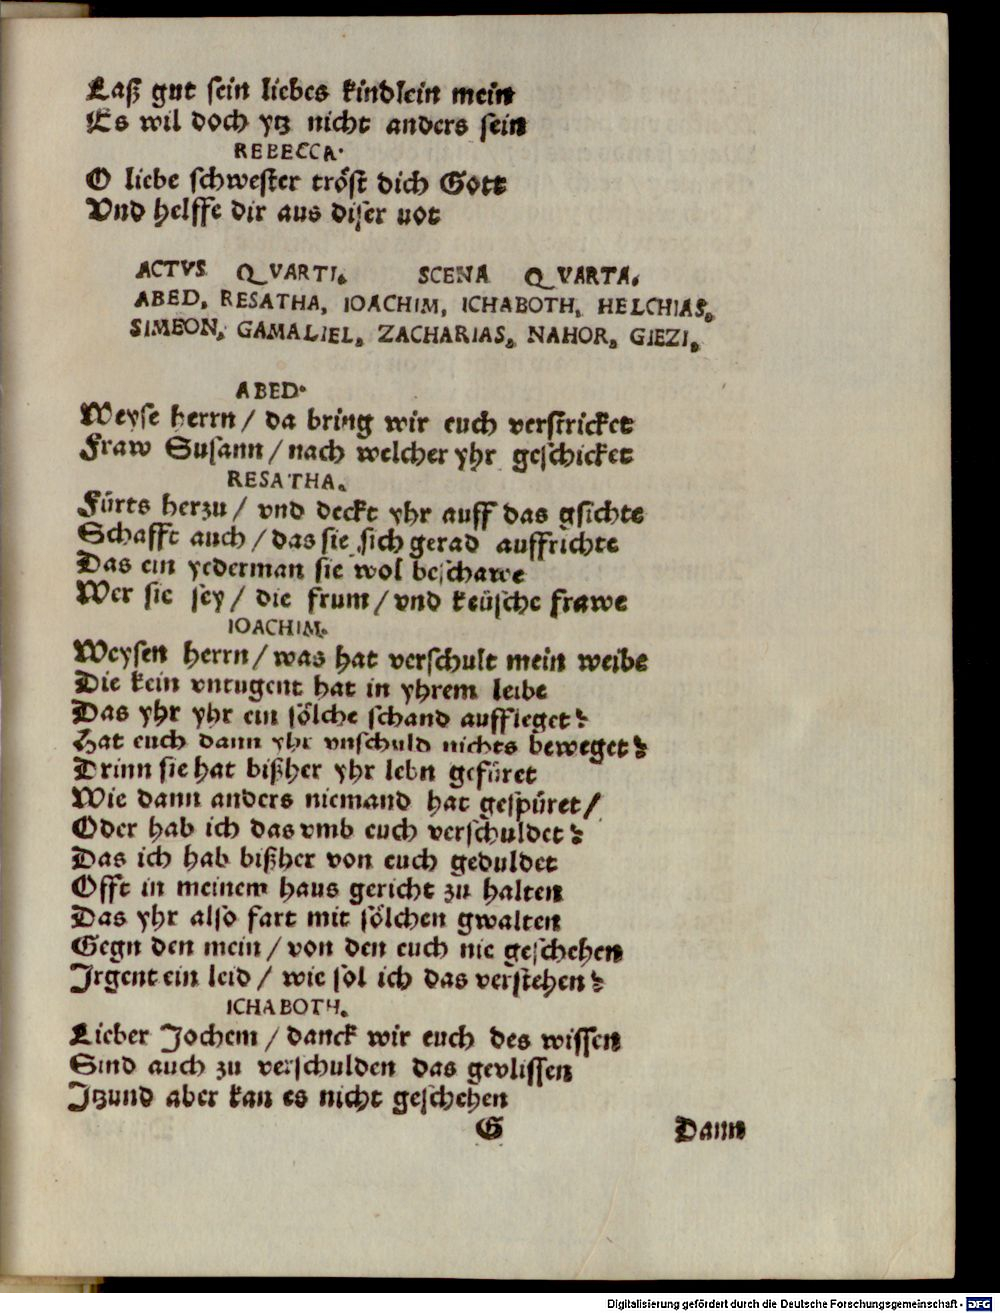 Laß gut sein liebes kindlein mein
Es wil doch ytz nicht anders sein
REBECCA.
O liebe schwester tröst dich Gott
Vnd helffe dir aus diser not
ACTVS QVARTI. SCENA QVARTA.
ABED, RESATHA, IOACHIM, ICHABOTH, HELCHIAS,
SIMEON, GAMALIEL, ZACHARIAS, NAHOR, GIEZI,
ABED.
Weyse herrn / da bring wir euch verstricket
Fraw Susann / nach welcher yhr geschicket
RESATHA.
Fürts herzu / vnd deckt yhr auff das gsichte
Schafft auch / das sie sich gerad auffrichte
Das ein yederman sie wol beschawe
Wer sie sey / die frum / vnd keüsche frawe
IOACHIM.
Weysen herrn / was hat verschult mein weibe
Die kein vntugent hat in yhrem leibe
Das yhr yhr ein sölche schand aufflegetꝛ
Hat euch dann yhr vnschuld nichts bewegetꝛ
Drinn sie hat bißher yhr lebn gefüret
Wie dann anders niemand hat gespüret /
Oder hab ich das vmb euch verschuldetꝛ
Das ich hab bißher von euch geduldet
Offt in meinem haus gericht zu halten
Das yhr also fart mit sölchen gwalten
Gegn den mein / von den euch nie geschehen
Irgent ein leid / wie sol ich das verstehenꝛ
ICHABOTH.
Lieber Jochem / danck wir euch des wissen
Sind auch zu verschulden das gevlissen
Itzund aber kan es nicht geschehen
G Dann
Digitalisierung gefördert durch die Deutsche Forschungsgemeinschaft - DFG